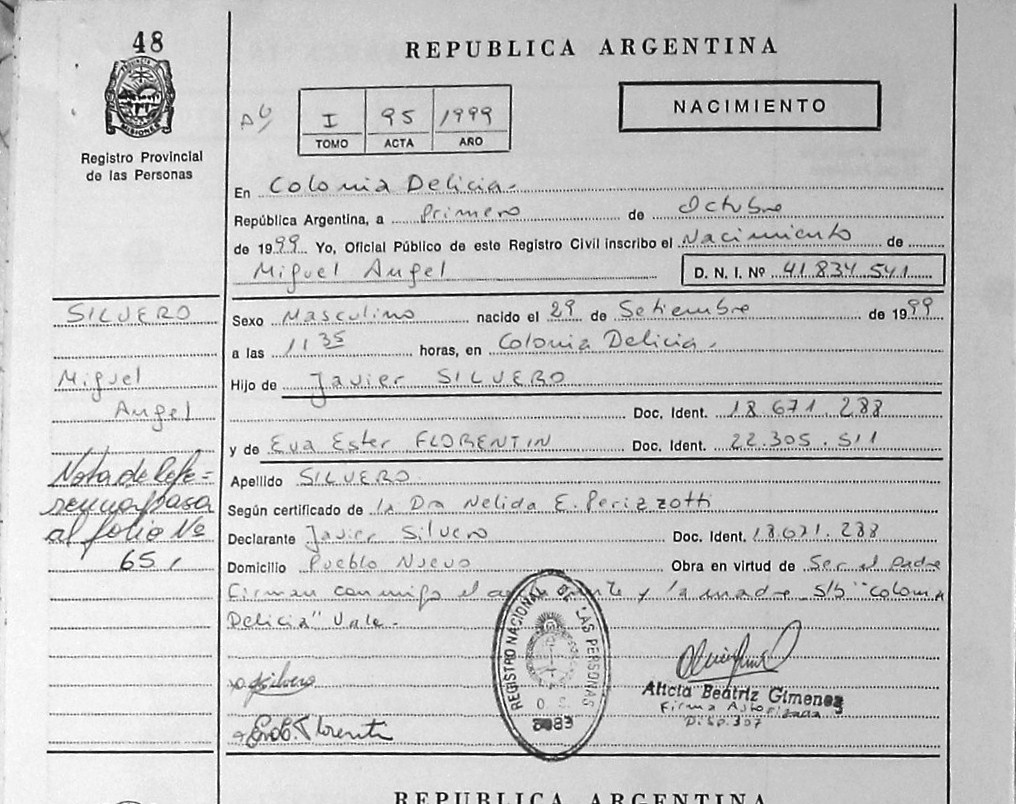 48
REPUBLICA ARGENTINA
MISIONES
Registro Provincial
de las Personas
I 95 1999
TOMO ACTA AÑO
NACIMIENTO
En Colonia Delicia.
República Argentina, a Primero de Octubre
de 1999 Yo, Oficial Público de este Registro Civil inscribo el Nacimiento de
Miguel Angel D. N. I. Nº 41.834.541
SILVERO
Miguel
Angel
Nota de Refe=
rencia pasa
al folio Nº
65,
Sexo Masculino nacido el 29 de Setiembre de 1999
a las 11 35 horas, en Colonia Delicia.
Hijo de Javier SILVERO
Doc. Ident. 18.671.288
y de Eva Ester FLORENTIN Doc. Ident. 22.305.511
Apellido SILVERO
Según certificado de la Dra Nelida E. Perizzotti
Declarante Javier Silvero Doc. Ident. 18.671.288
Domicilio Pueblo Nuevo Obra en virtud de Ser el Padre
Firman conmigo el y la madre S/b "Colonia
Delicia" Vale.
REGISTRO NACIONAL DE LAS PERSONAS
Alicia Beatriz Gimenez
Firma Autorizada
Disp. 307
REPUBLICA ARGENTINA